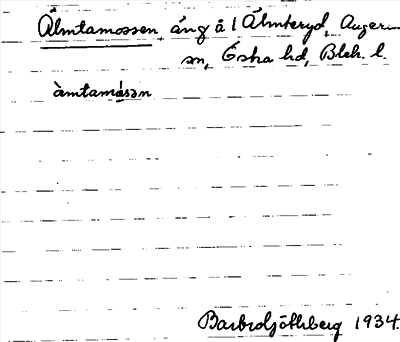 Älmtamossen, äng å 1 Älmteryd, Augerum
sn, Östra hd, Blek. l.
àmtamåsən
Barbro Ljöthberg 1934.